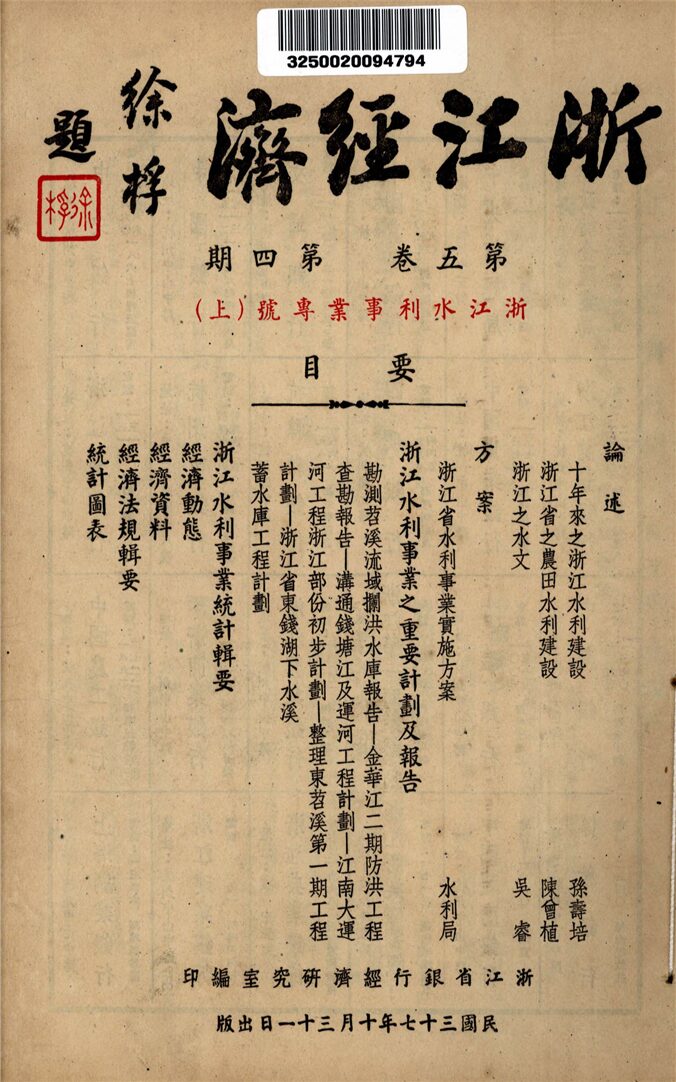 3250020094794
浙江經濟
徐桴
題
徐桴
第五卷 第四期
浙江水利事業專號(上)
要目
論述
十年來之浙江水利建設 孫壽培
浙江省之農田水利建設 陳曾植
浙江之水文 吳睿
方案
浙江省水利事業實施方案 水利局
浙江水利事業之重要計劃及報告
勘測苕溪流域攔洪水庫報告—金華江二期防洪工程
查勘報告—溝通錢塘江及運河工程計劃—江南大運
河工程浙江部份初步計劃—整理東苕溪第一期工程
計劃—浙江省東錢湖下水溪
蓄水庫工程計劃
浙江水利事業統計輯要
經濟動態
經濟資料
經濟法規輯要
統計圖表
浙江省銀行經濟研究室編印
民國三十七年十月三十一日出版